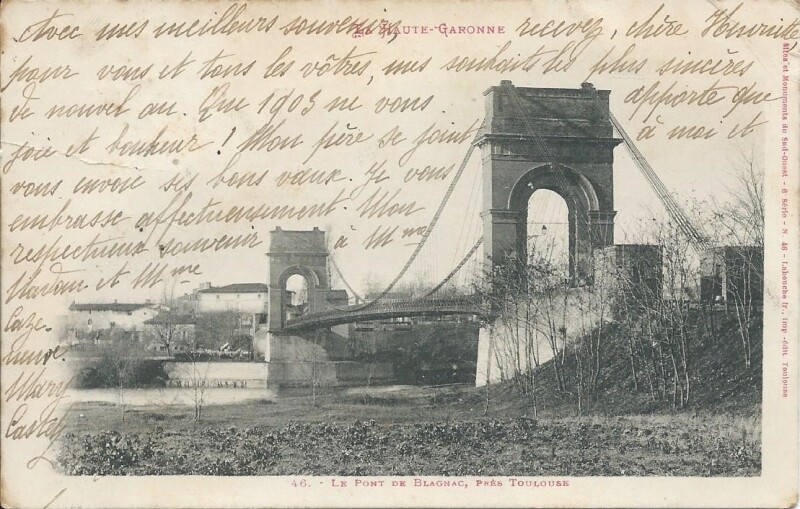 La Haute-Garonne
Avec mes meilleurs souvenirs, recevez, chère Henriette
pour vous et tous les vôtres, mes souhaits les plus sincères
de nouvel an. Que 1903 ne vous apporte que
joie et bonheur ! Mon père se joint à moi et
vous envoie ses bons vœux. Je vous
embrasse affectueusement. Mon
respectueux souvenir à Mme
et Mme
Caze-
neuve.
Mary
46. - Le Pont de Blagnac, près Toulouse
Sites et Monuments du Sud-Ouest - 6e Série - N. 46 - Labouche fr., imp.-édit. Toulouse